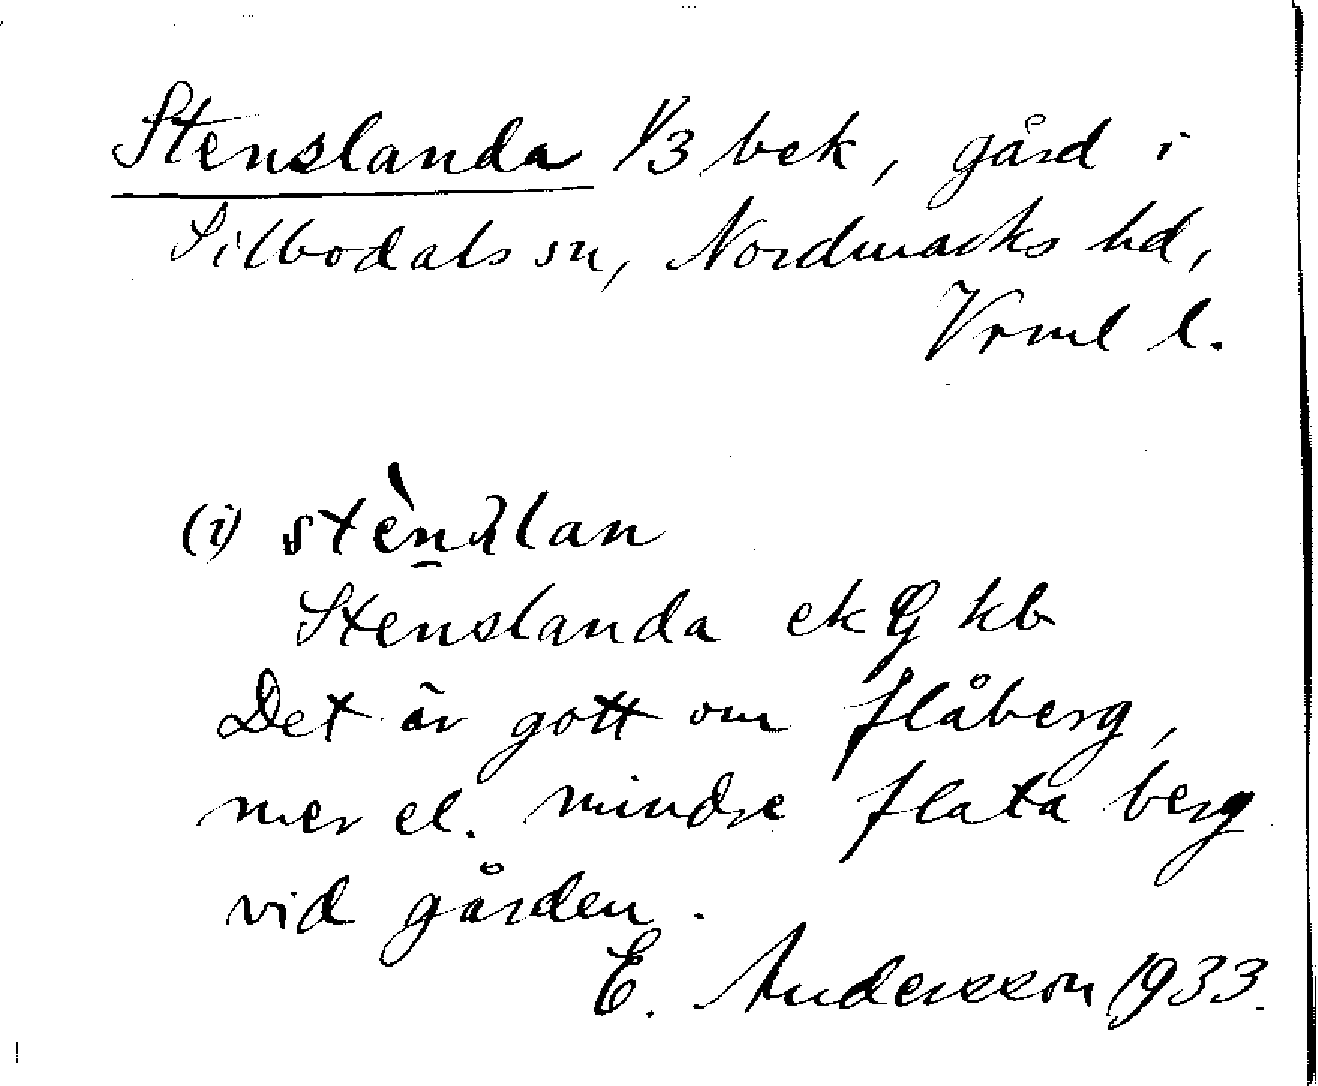 Stenslanda 1/3 bek, gård i
Silbodals sn, Nordmarks hd,
Vrml l.
(i)
Stenslanda ek G kb
Det är gott om flåberg,
mer el. mindre flata berg
vid gården.
E. Andersson 1933.